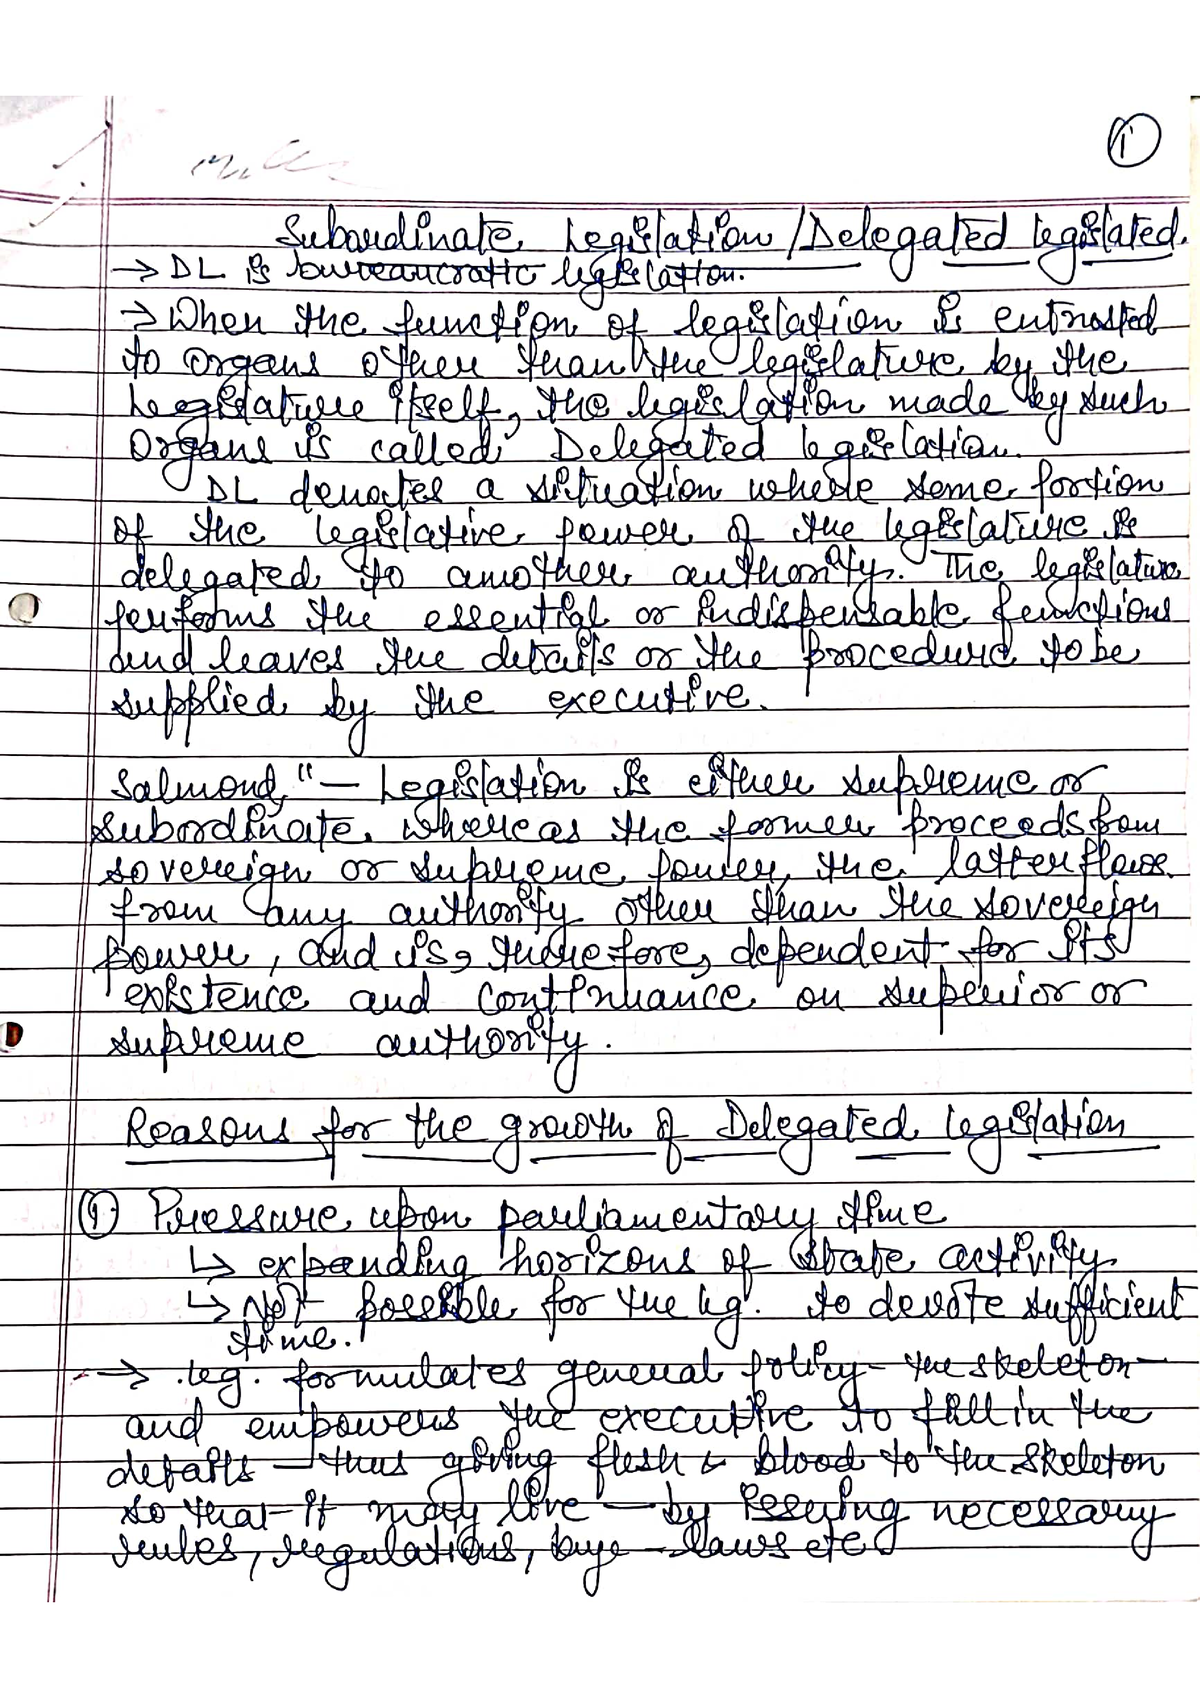 1
Subordinate Legislation / Delegated legislated.
→ DL is bureaucratic legislation.
→ When the function of legislation is entrusted
to organs other than the legislature by the
Legislature itself, the legislation made by such
Organs is called Delegated legislation.
DL denotes a situation where some portion
of the legislative power of the legislature is
delegated to another authority. The legislature
performs the essential or indispensable functions
and leaves the details or the procedure to be
supplied by the executive.
Salmond, " — Legislation is either supreme or
subordinate. Whereas the former proceeds from
sovereign or supreme power, the latter flows
from any authority other than the sovereign
power, and is, therefore, dependent for its
existence and continuance on superior or
supreme authority.
Reasons for the growth of Delegated Legislation
① Pressure upon parliamentary time
↳ expanding horizons of State activity
↳ Not possible for the leg. to devote sufficient
time.
→ leg. formulates general policy – the skeleton –
and empowers the executive to fill in the
details – thus giving flesh & blood to the skeleton
so that it may live – by issuing necessary
rules, regulations, bye-laws etc